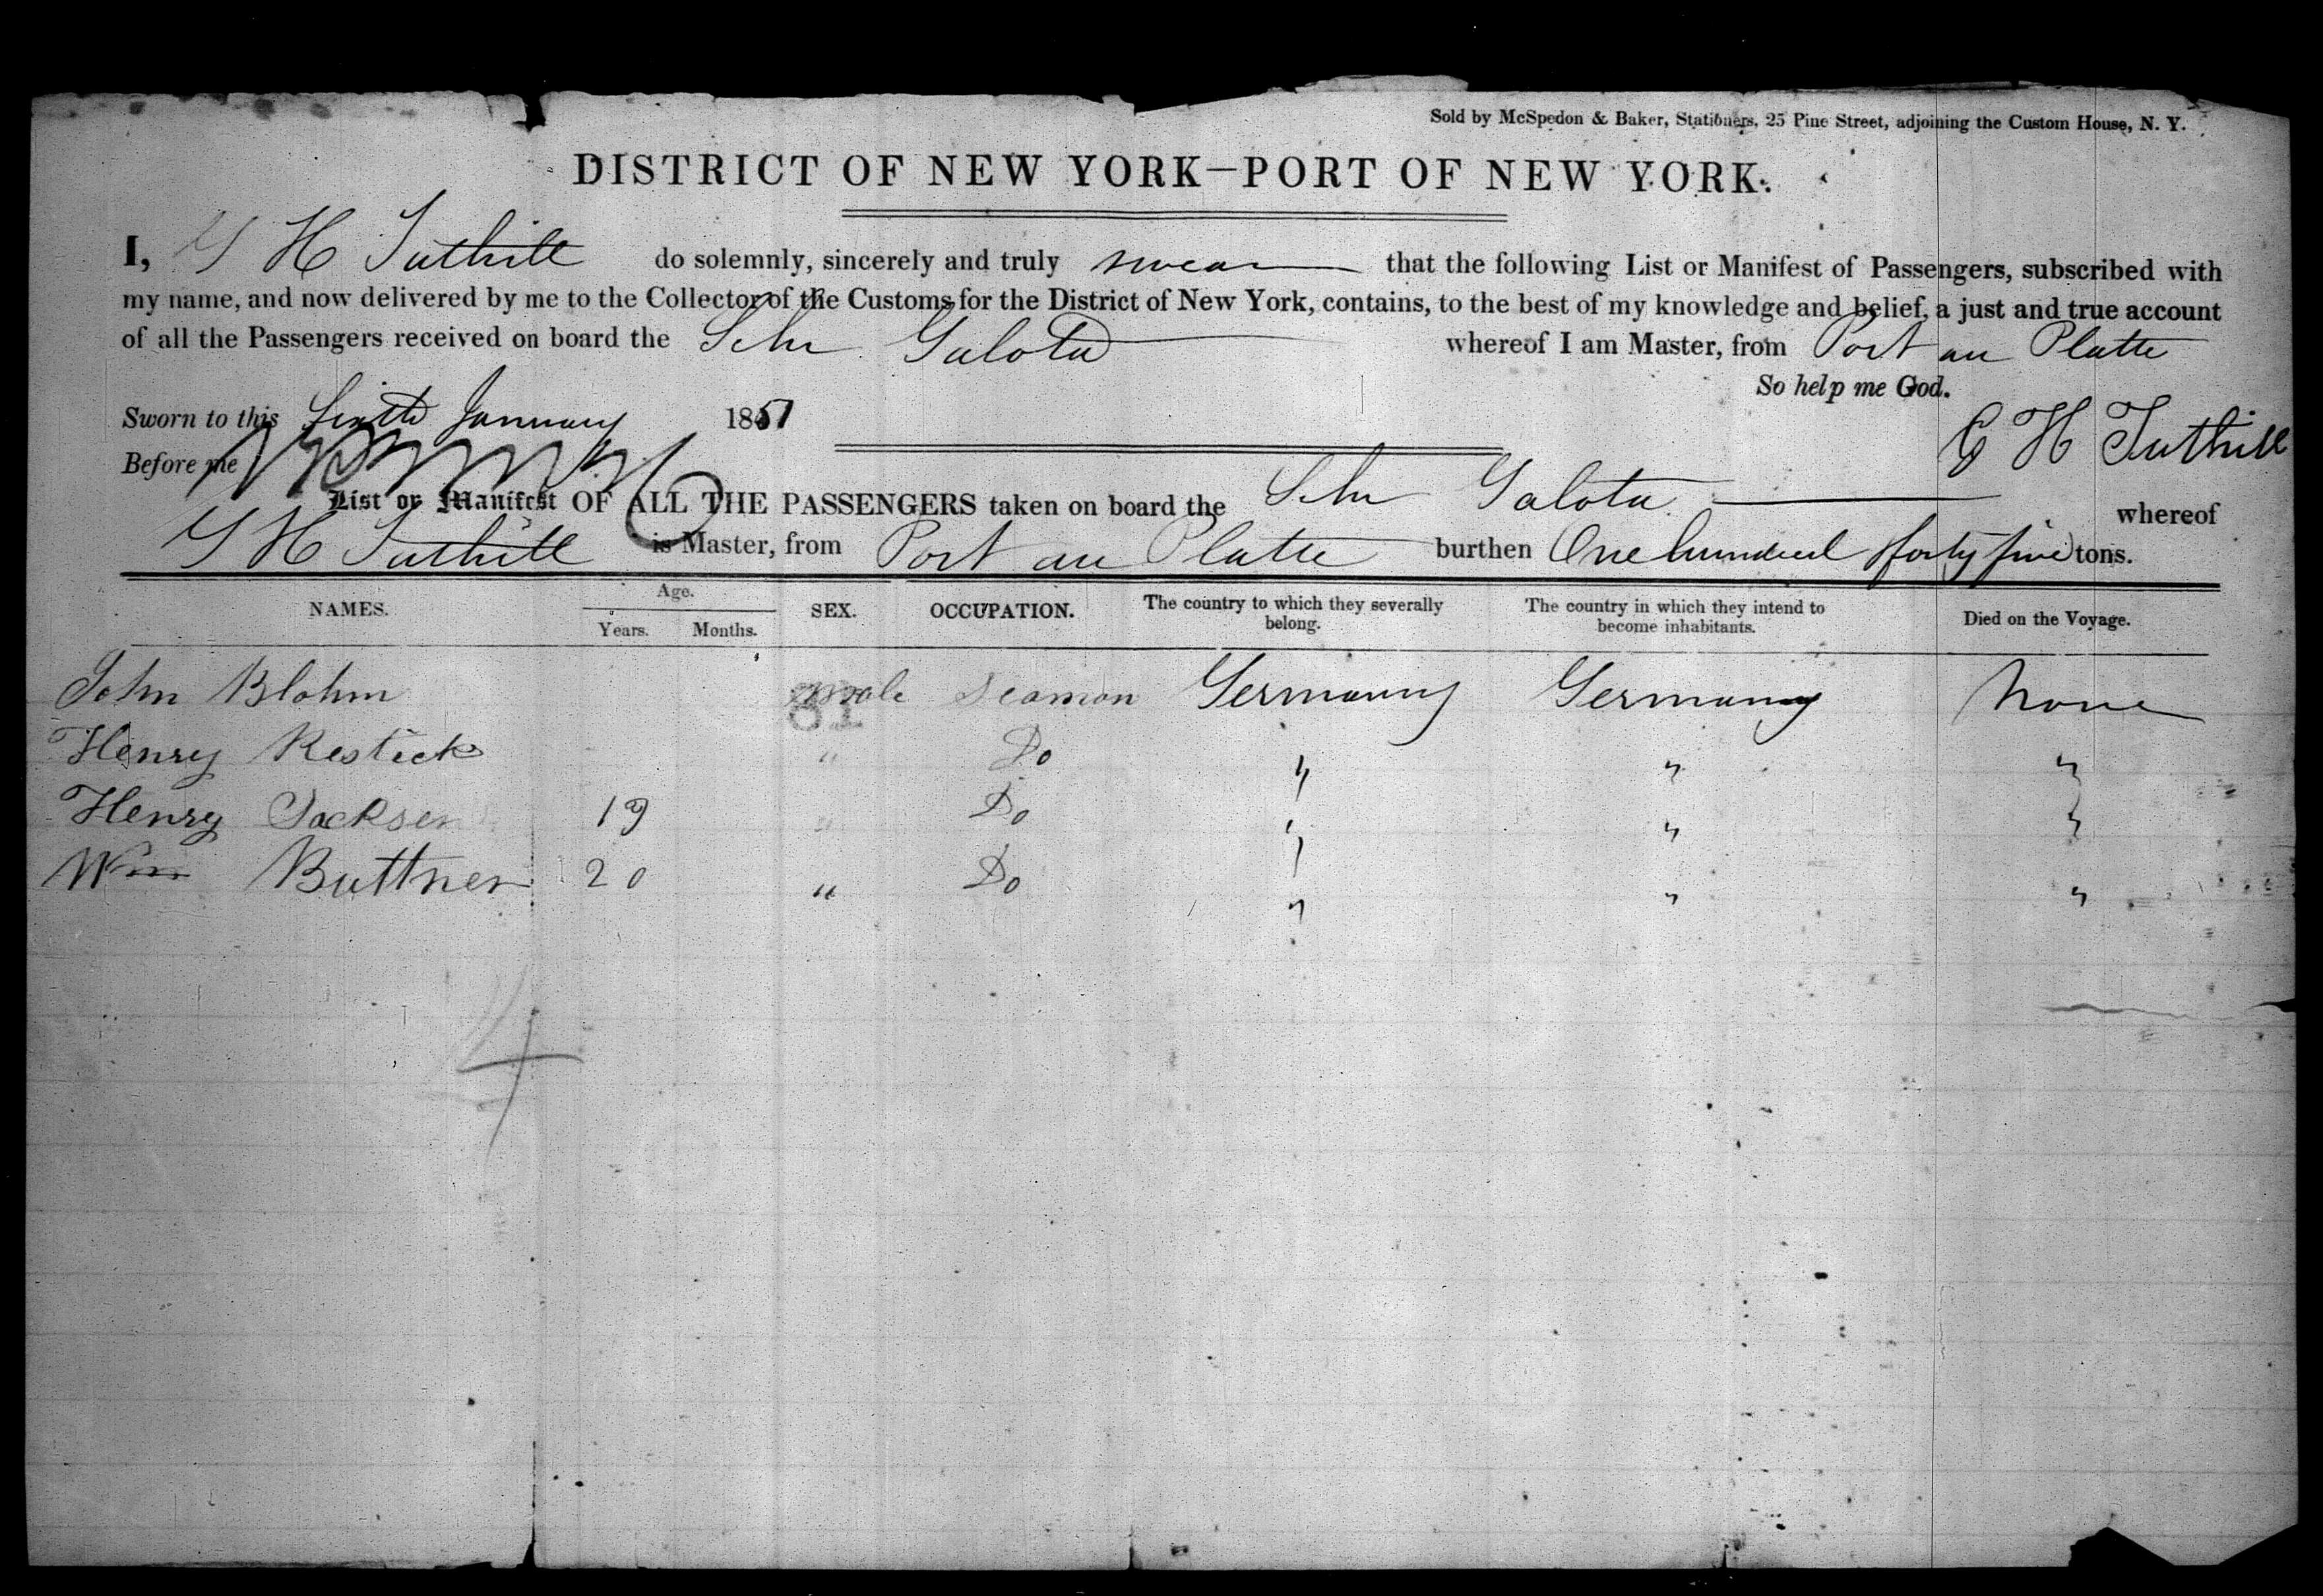 Sold by McSpedon & Baker, Stationers, 25 Pine Street, adjoining the Custom House, N. Y.
DISTRICT OF NEW YORK—PORT OF NEW YORK.
I, G H Tuthill do solemnly, sincerely and truly swear that the following List or Manifest of Passengers, subscribed with
my name, and now delivered by me to the Collector of the Customs for the District of New York, contains, to the best of my knowledge and belief, a just and true account
of all the Passengers received on board the Schr Galota whereof I am Master, from Port au Platte
So help me God.
Sworn to this Sixth January 1851
G H Tuthill
Before me
List or Manifest OF ALL THE PASSENGERS taken on board the Schr Galota whereof
G H Tuthill is Master, from Port au Platte burthen One hundred forty five tons.
NAMES. Age. Years. Months. SEX. OCCUPATION. The country to which they severally belong. The country in which they intend to become inhabitants. Died on the Voyage.
John Blohm Male Seaman Germany Germany None
81
Henry Restick " Do " " "
Henry Jacksen 19 " Do " " "
Wm Buttner 20 " Do " " "
4